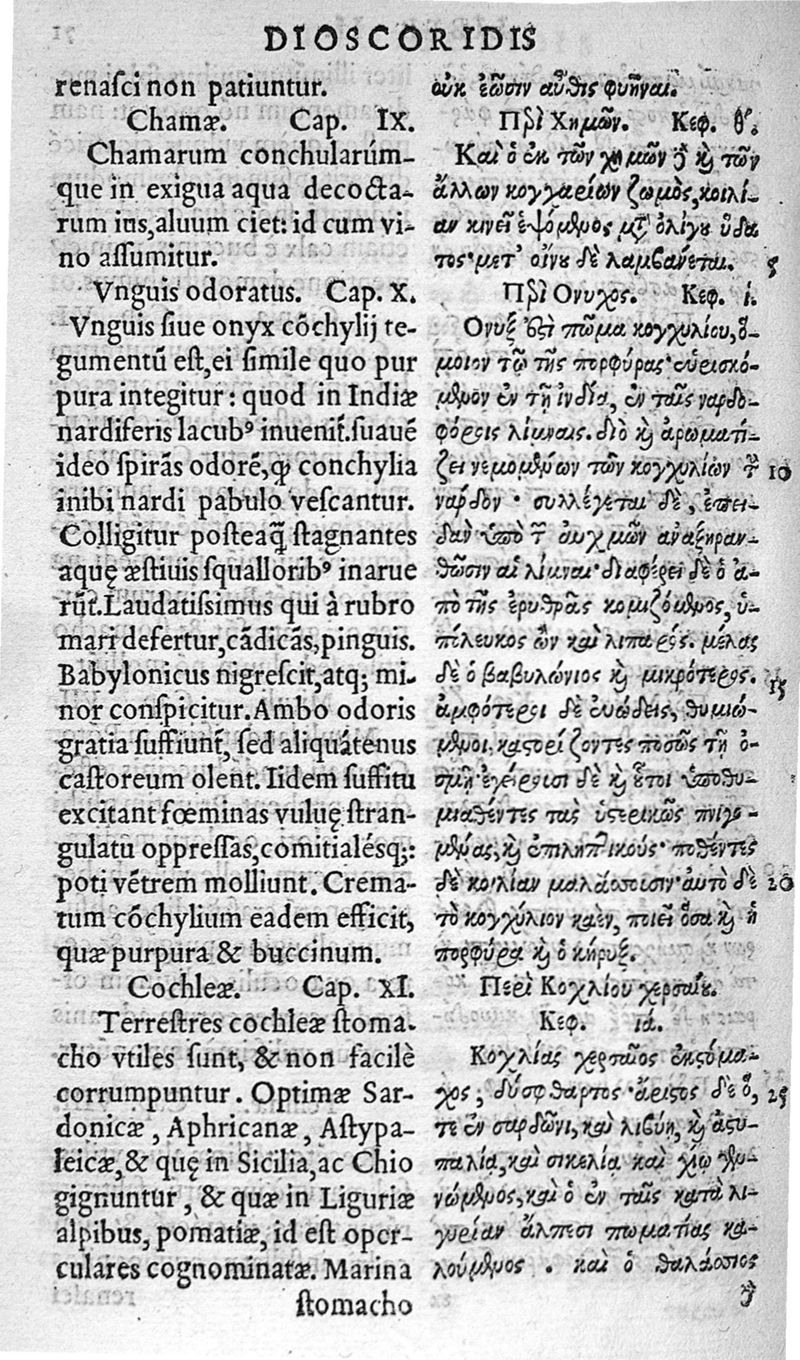 DIOSCORIDIS
renasci non patiuntur.
Chamæ. Cap. IX.
Chamarum conchularúm-
que in exigua aqua decocta-
rum ius, aluum ciet: id cum vi-
no assumitur.
Vnguis odoratus. Cap. X.
Vnguis siue onyx cõchylij te-
gumentũ est, ei simile quo pur
pura integitur: quod in Indiæ
nardiferis lacubꝰ inuenit̃. suauẽ
ideo spirãs odorẽ, ꝙ conchylia
inibi nardi pabulo vescantur.
Colligitur posteaq̃ stagnantes
aquę æstiuis squalloribꝰ inarue
rũt. Laudatissimus qui à rubro
mari defertur, cãdicãs, pinguis.
Babylonicus nigrescit, atq; mi-
nor conspicitur. Ambo odoris
gratia suffiunt̃, sed aliquátenus
castoreum olent. Iidem suffitu
excitant fœminas vuluę stran-
gulatu oppressas, comitialésq;:
poti vẽtrem molliunt. Crema-
tum cõchylium eadem efficit,
quæ purpura & buccinum.
Cochleæ. Cap. XI.
Terrestres cochleæ stoma-
cho vtiles sunt, & non facilè
corrumpuntur. Optimæ Sar-
donicæ, Aphricanæ, Astypa-
leicæ, & quę in Sicilia, ac Chio
gignuntur, & quæ in Liguriæ
alpibus, pomatiæ, id est oper-
culares cognominatæ. Marina
stomacho
οὐκ ἐῶσιν αὖθις φυῆναι.
Περὶ Χημῶν. Κεφ. θʹ.
Καὶ ὁ ἐκ τῶν χημῶν ϗ τῶν
ἄλλων κογχαρίων ζωμὸς, κοιλί-
αν κινεῖ ἑψόμενος μετ' ὀλίγου ὕδα
τος· μετ' οἴνου δὲ λαμβάνεται. 5
Περὶ Ονυχος. Κεφ. ί.
Ονυξ ἐστὶ πῶμα κογχυλίου, ὅ-
μοιον τῷ τῆς πορφύρας· εὑρισκό-
μενον ἐν τῇ ἰνδίᾳ, ἐν ταῖς ναρδο-
φόροις λίμναις. διὸ ϗ ἀρωματί-
ζει νεμομένων τῶν κογχυλίων τὴν 10
νάρδον· συλλέγεται δὲ, ἐπει-
δὰν ὑπὸ τῶν αὐχμῶν ἀναξηραν-
θῶσιν αἱ λίμναι· διαφέρει δὲ ὁ ἀ-
πὸ τῆς ἐρυθρᾶς κομιζόμενος, ὑ-
πόλευκος ὢν καὶ λιπαρός. μέλας
δὲ ὁ βαβυλώνιος ϗ μικρότερος. 15
ἀμφότεροι δὲ εὐώδεις, θυμιώ-
μενοι, καστορίζοντες ποσῶς τῇ ὀ-
σμῇ· ἐγείρουσι δὲ ϗ οὗτοι ὑποθυ-
μιαθέντες τὰς ὑστερικῶς πνιγο-
μένας, ϗ ἐπιληπτικούς· ποθέντες
δὲ κοιλίαν μαλάσσουσιν· αὐτὸ δὲ 20
τὸ κογχύλιον καὲν, ποιεῖ ὅσα ϗ ἡ
πορφύρα ϗ ὁ κήρυξ.
Περὶ Κοχλίου χερσαίου.
Κεφ. ιά.
Κοχλίας χερσαῖος εὐστόμα-
χος, δύσφθαρτος· ἄριστος δὲ ὅ, 25
τε ἐν σαρδῶνι, καὶ λιβύῃ, ϗ ἀστυ-
παλίᾳ, καὶ σικελίᾳ καὶ χίῳ γεν-
νώμενος, καὶ ὁ ἐν ταῖς κατὰ λι-
γυρίαν ἄλπεσι πωματίας κα-
λούμενος. καὶ ὁ θαλάσσιος